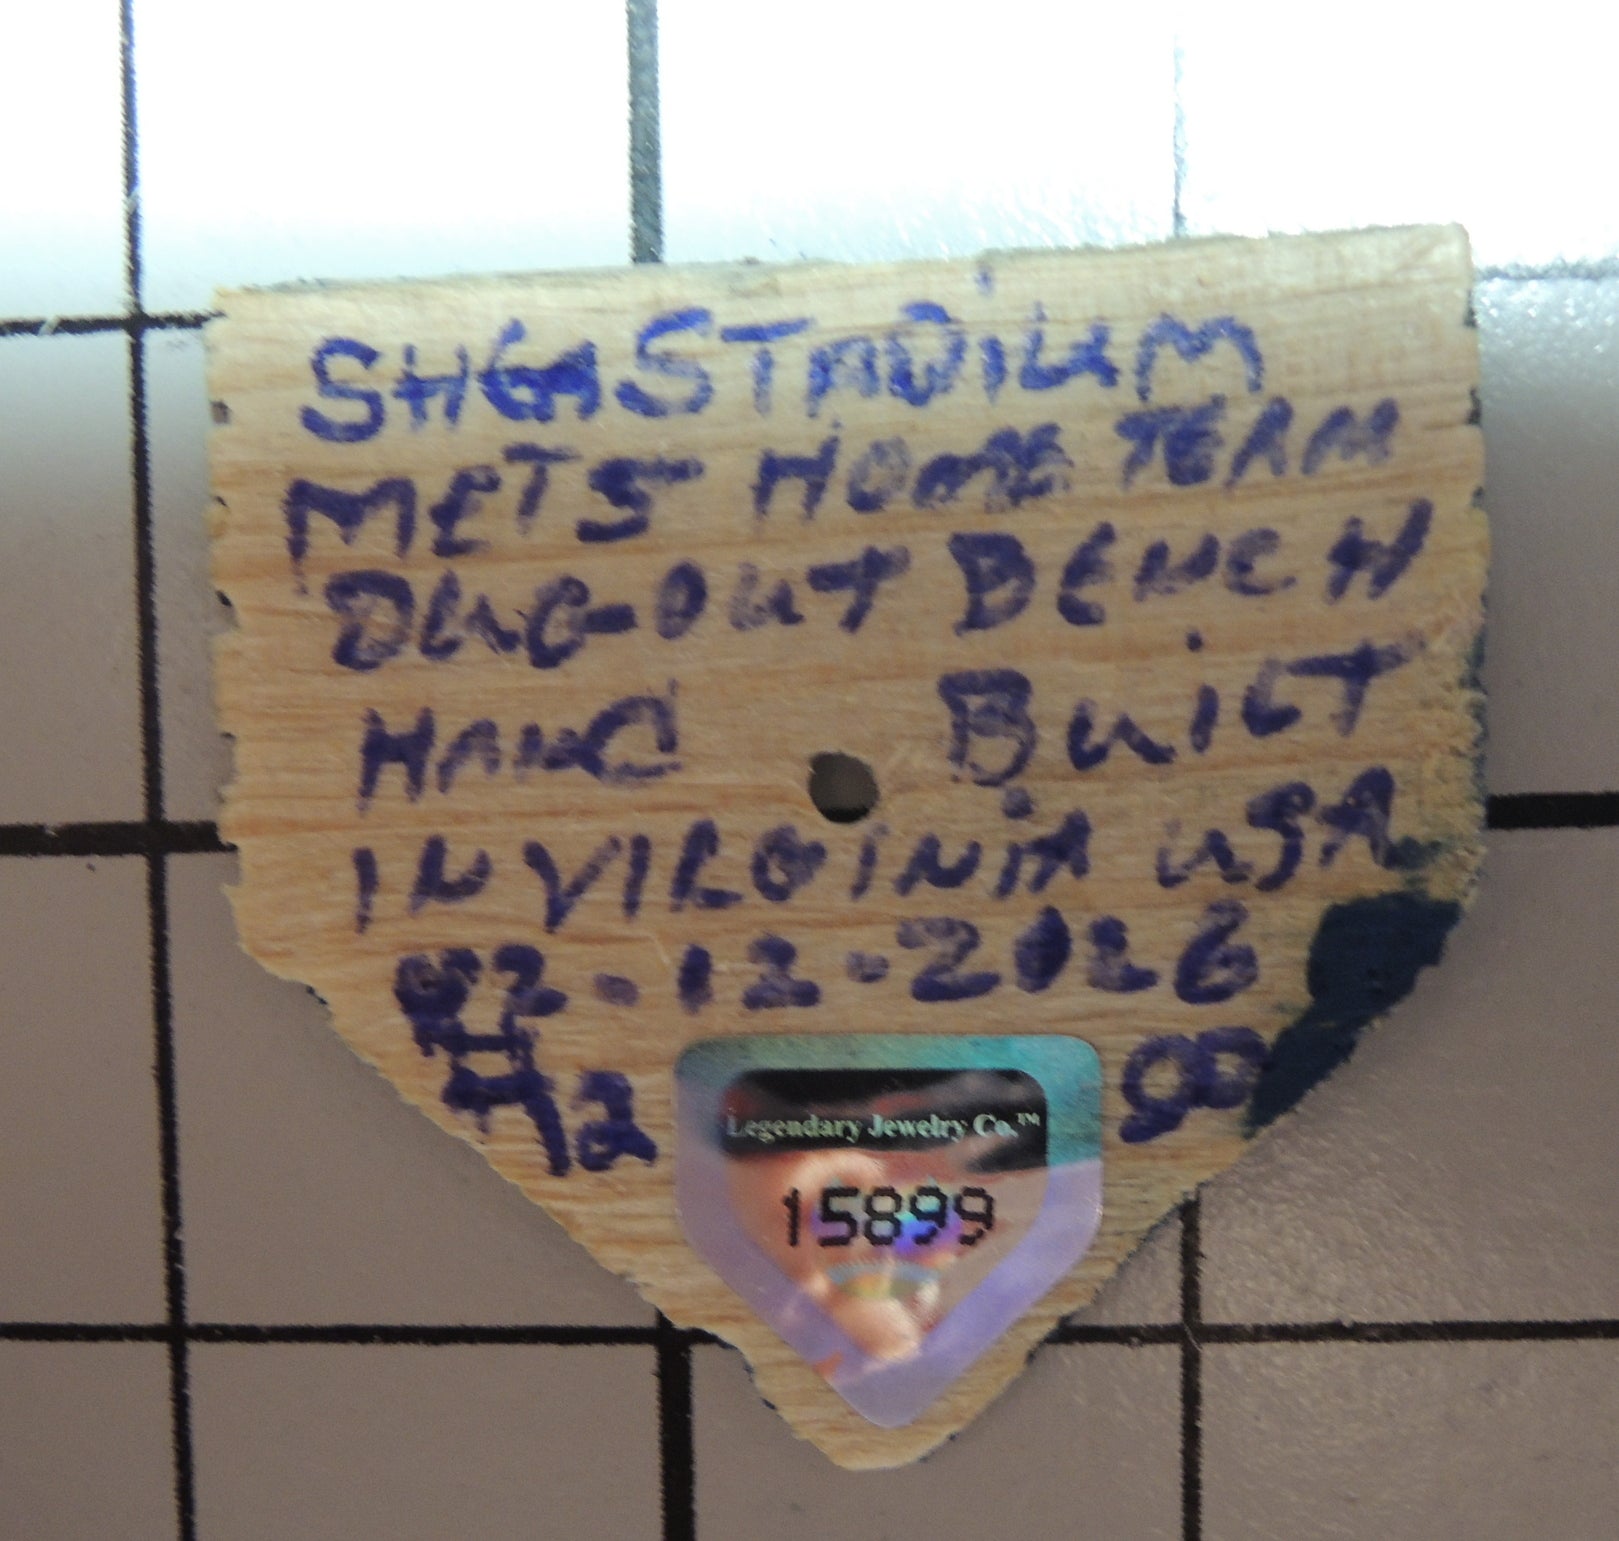 SHEA STADiuM
METS HOME TEAM
DuG-OuT BENCH
HAND BuiLT
IN VIRGINiA uSA
02-12-2026
#2
Legendary Jewelry Co.™
15899